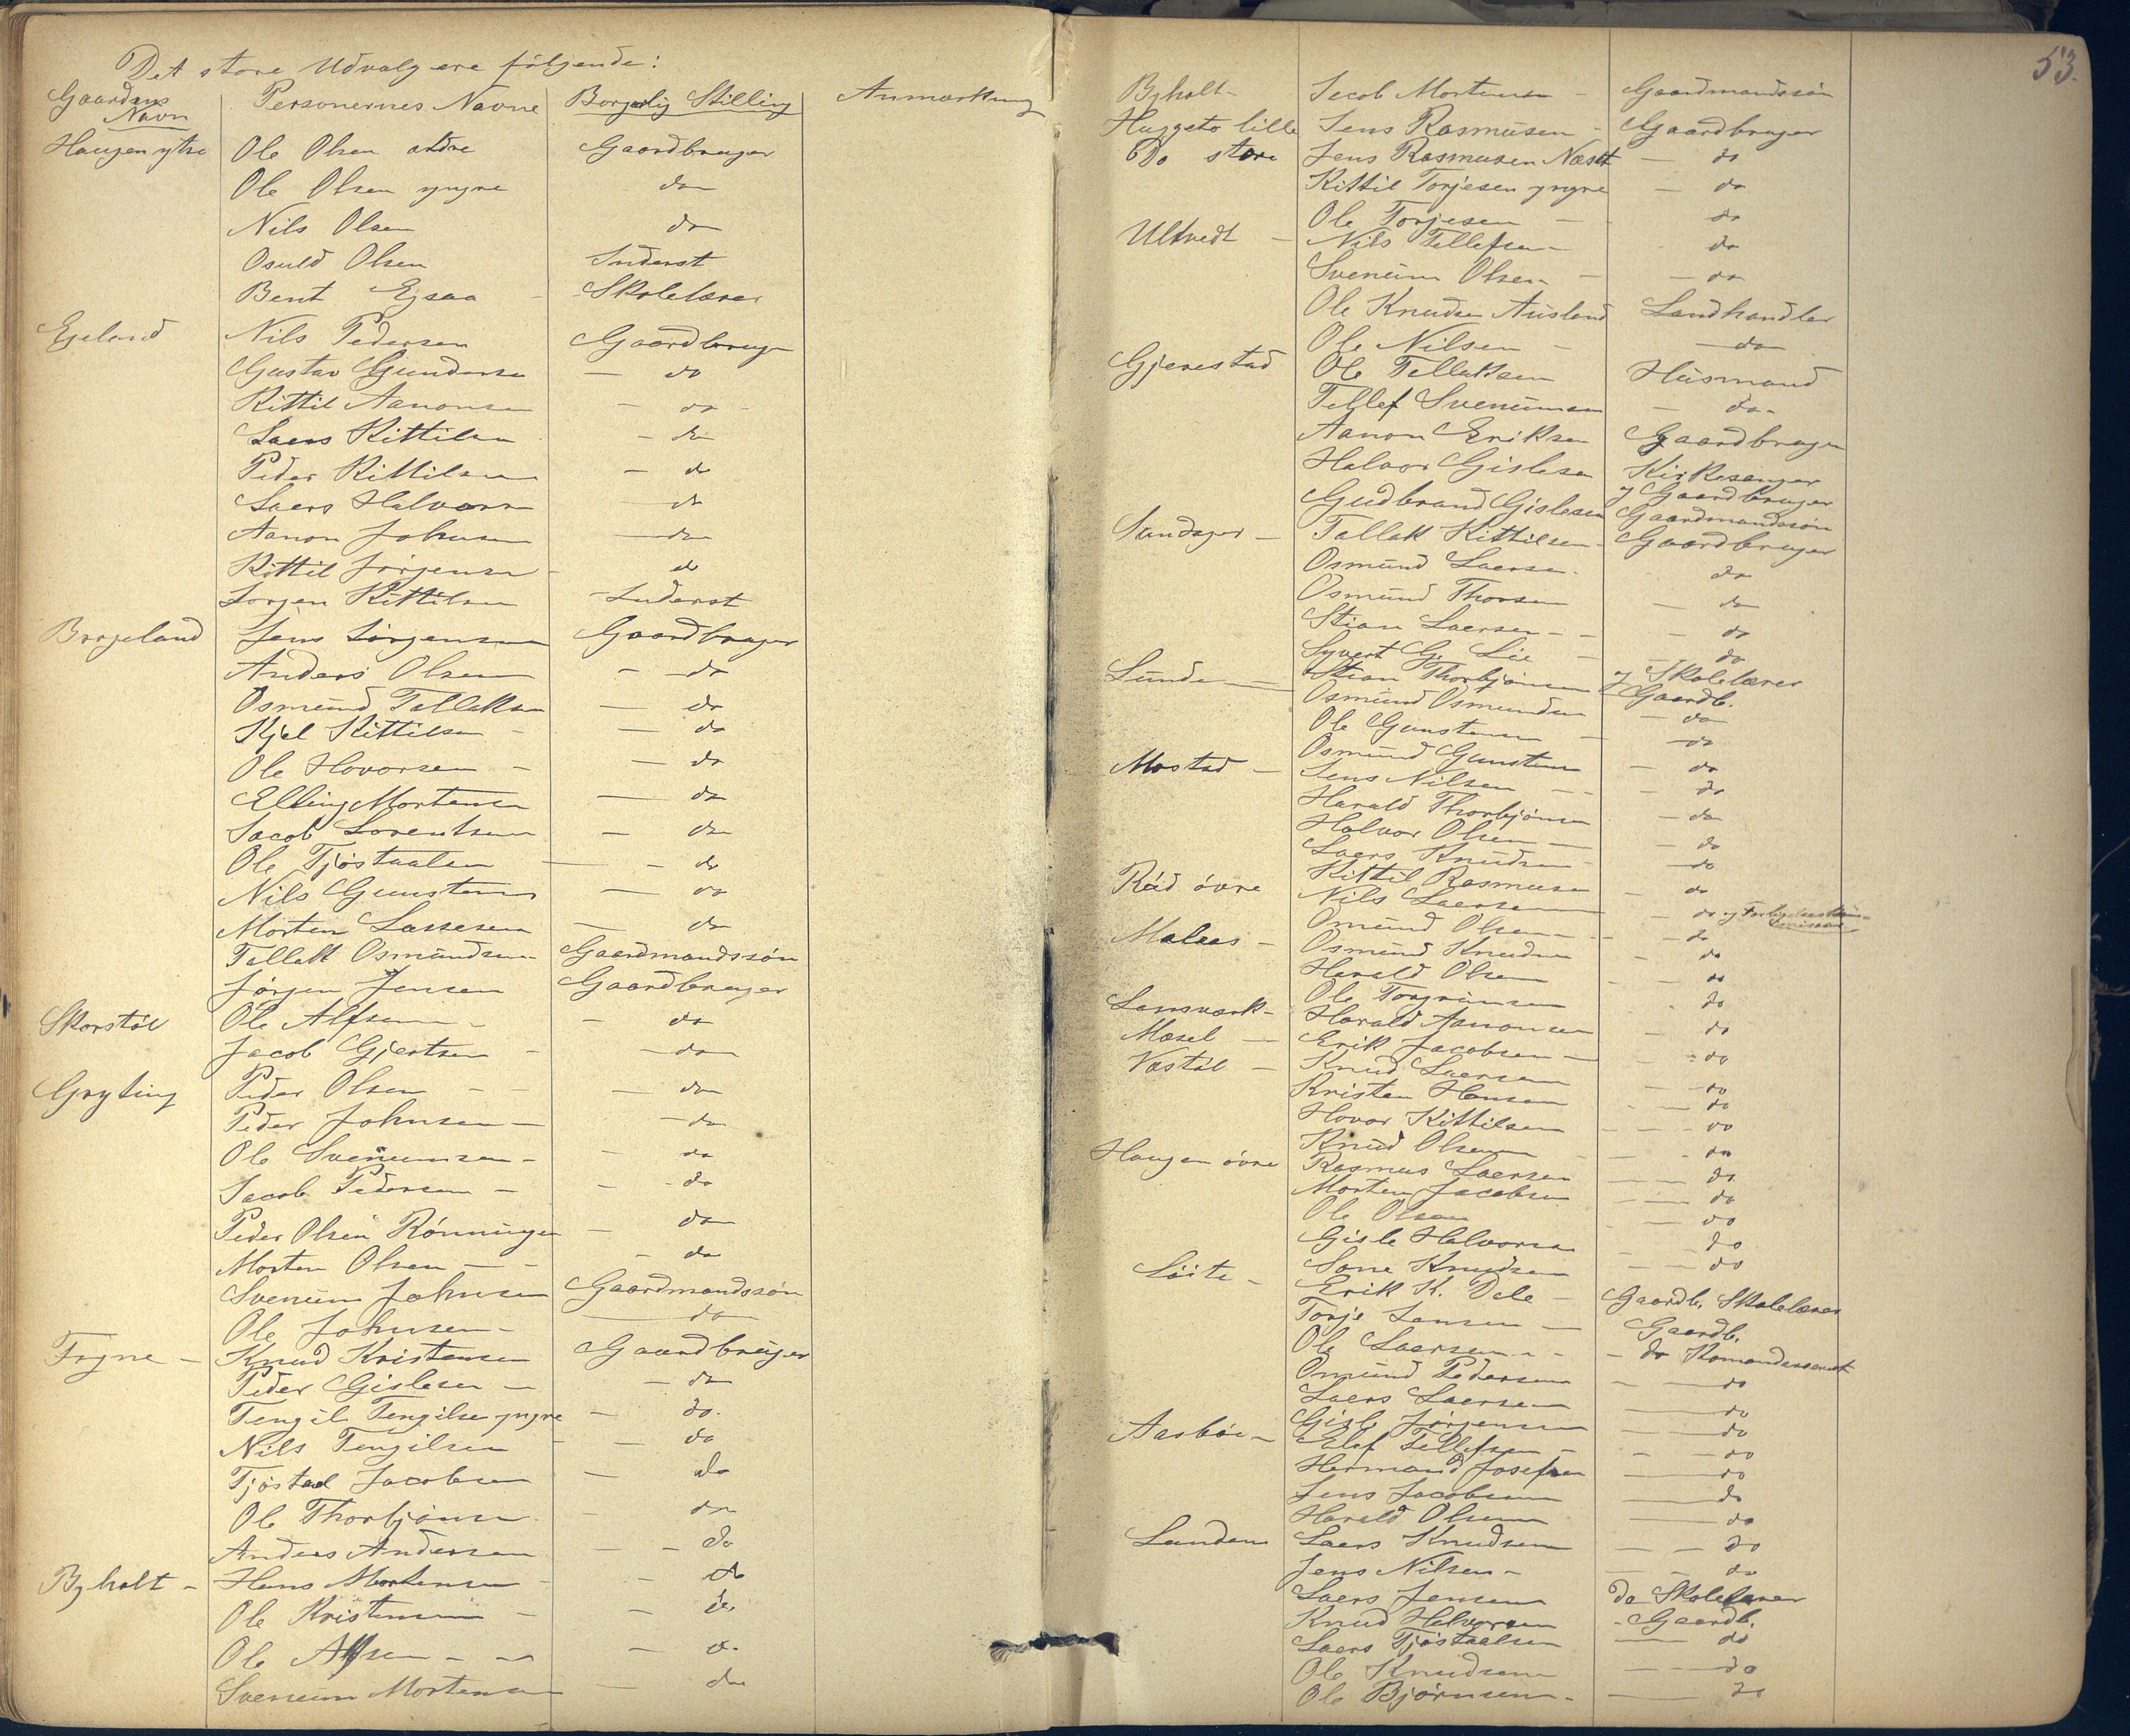 Det store Udvalg ere følgende:
Gaardens Navn Personernes Navne Borgerlig Stilling Anmærkning
Haugen ytre Ole Olsen ældre Gaardbruger
Ole Olsen yngre do
Nils Olsen do
Osuld Olsen Inderst
Bent Egsaa - Skolelærer
Egeland Nils Pedersen Gaardbruger
Gustav Gundersen — do
Kittil Aanonsen — do
Laers Kittilsen - do
Peder Kittilsen - do
Laers Halvorsen — do
Aanon Johnsen — do
Kittil Jørgensen - do
Jørgen Kittilsen Inderst
Brogeland Jens Jørgensen Gaardbruger
Anders Olsen - do
Osmund Tallaksen — do
Kjel Kittilsen - — do
Ole Hovorsen - — do
Elling Mortensen — do
Jacob Lorentsen — do
Ole Tjøstaalsen — do
Nils Gunstensen — do
Morten Lassesen — do
Tallak Osmundsen Gaardmandssøn
Jørgen Jensen Gaardbruger
Skorstøl Ole Alfsen - — do
Jacob Gjertsen - — do
Gryting Peder Olsen — do
Peder Johnsen — do
Ole Sveinumsen - — do
Jacob Pedersen - — do
Peder Olsen Rønningen — do
Morten Olsen — - do
Sveinum Johnsen Gaardmandssøn
Ole Johnsen - — do
Trgne — Knud Kristensen Gaardbruger
Peder Gislesen — do
Tengil Tengilsen yngre — do.
Nils Tengilsen — do
Tjøstad Jacobsen — do
Ole Thorbjønsen do
Anders Andersen — do
Byholt - Hans Mortensen - do
Ole Kristensen - — do
Ole Alfsen - — do
Sveinum Mortensen — do
53.
Byholt - Jacob Mortensen - Gaardmandssøn
Huggeto lille Jens Rasmusen - Gaardbruger
Do store Jens Rasmusen Næset — do
Kittil Torjesen yngre — do
Ole Torjesen — do
Ultvedt — Nils Tellefsen do
Sveinum Olsen - — do
Ole Knudsen Ausland Landhandler
Ole Nilsen - — do
Gjerestad Ole Tallaksen Husmand
Tellef Sveinumsen — do.
Aanon Eriksen Gaardbruger
Halvor Gislesen Kirkesanger og Gaardbruger
Gudbrand Gislesen Gaardmandssøn
Sandager — Tallak Kittilsen Gaardbruger
Osmund Laersen. do
Osmund Thorsen — do
Stian Laersen - - — do
Syvert G. Lie — do og Skolelærer
Lunde — Stian Thorbjønsen Gaardb.
Osmund Osmundsen — do
Ole Gunstensen — do
Osmund Gunstensen — do
Mostad — Jens Nilsen — do
Harald Thorbjønsen — do
Halvor Olsen — do
Laers Knudsen — do
Kittil Rasmusen — do
Rød øvre Nils Laersen — do og
Omund Olsen — do
Molaas - Osmund Knudsen - do
Harald Olsen — do
Ole Torgrimsen - do
Lønsværk - Harald Aanonsen — do
Mosel — Erik Jacobsen — do
Vastøl — Knud Laersen — do
Kristen Hansen — do
Hovor Kittilsen — do
Knud Olsen — do
Haugen øvre Rasmus Laersen — do
Morten Jacobsen — do
Ole Olsen — do
Gisle Halvorsen — do
Løite - Sone Knudsen — do
Erik K. Dale — Gaardb. Skolelærer
Torje Jensen — Gaardb.
Ole Laersen - - do
Omund Pedersen — do
Laers Laersen — do
Gisle Jørgensen — do
Aasbøe - Elef Tellefsen — do
Hermand Josefsen — do
Jens Jacobsen — do
Harald Olsen — do
Lunden Laers Knudsen — do
Jens Nilsen - — do
Laers Jensen do Skolelærer
Knud Halvorsen - Gaardb.
Laers Tjøstaalsen — do
Ole Knudsen — do
Ole Bjørnsen - — do